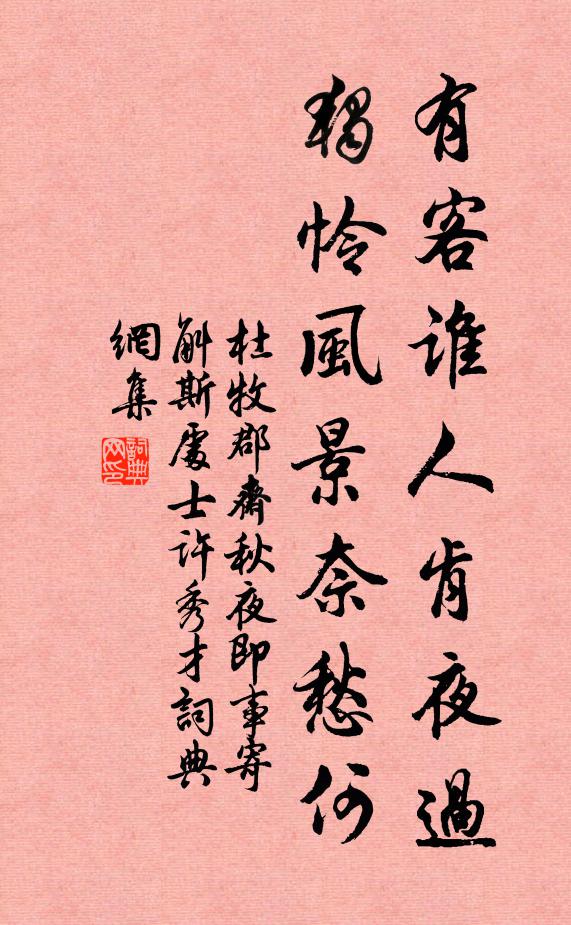 有客誰人肯夜過
獨憐風景奈愁何
杜牧郡齋秋夜即事寄
斛斯處士許秀才詞典
網集
詞典
网印